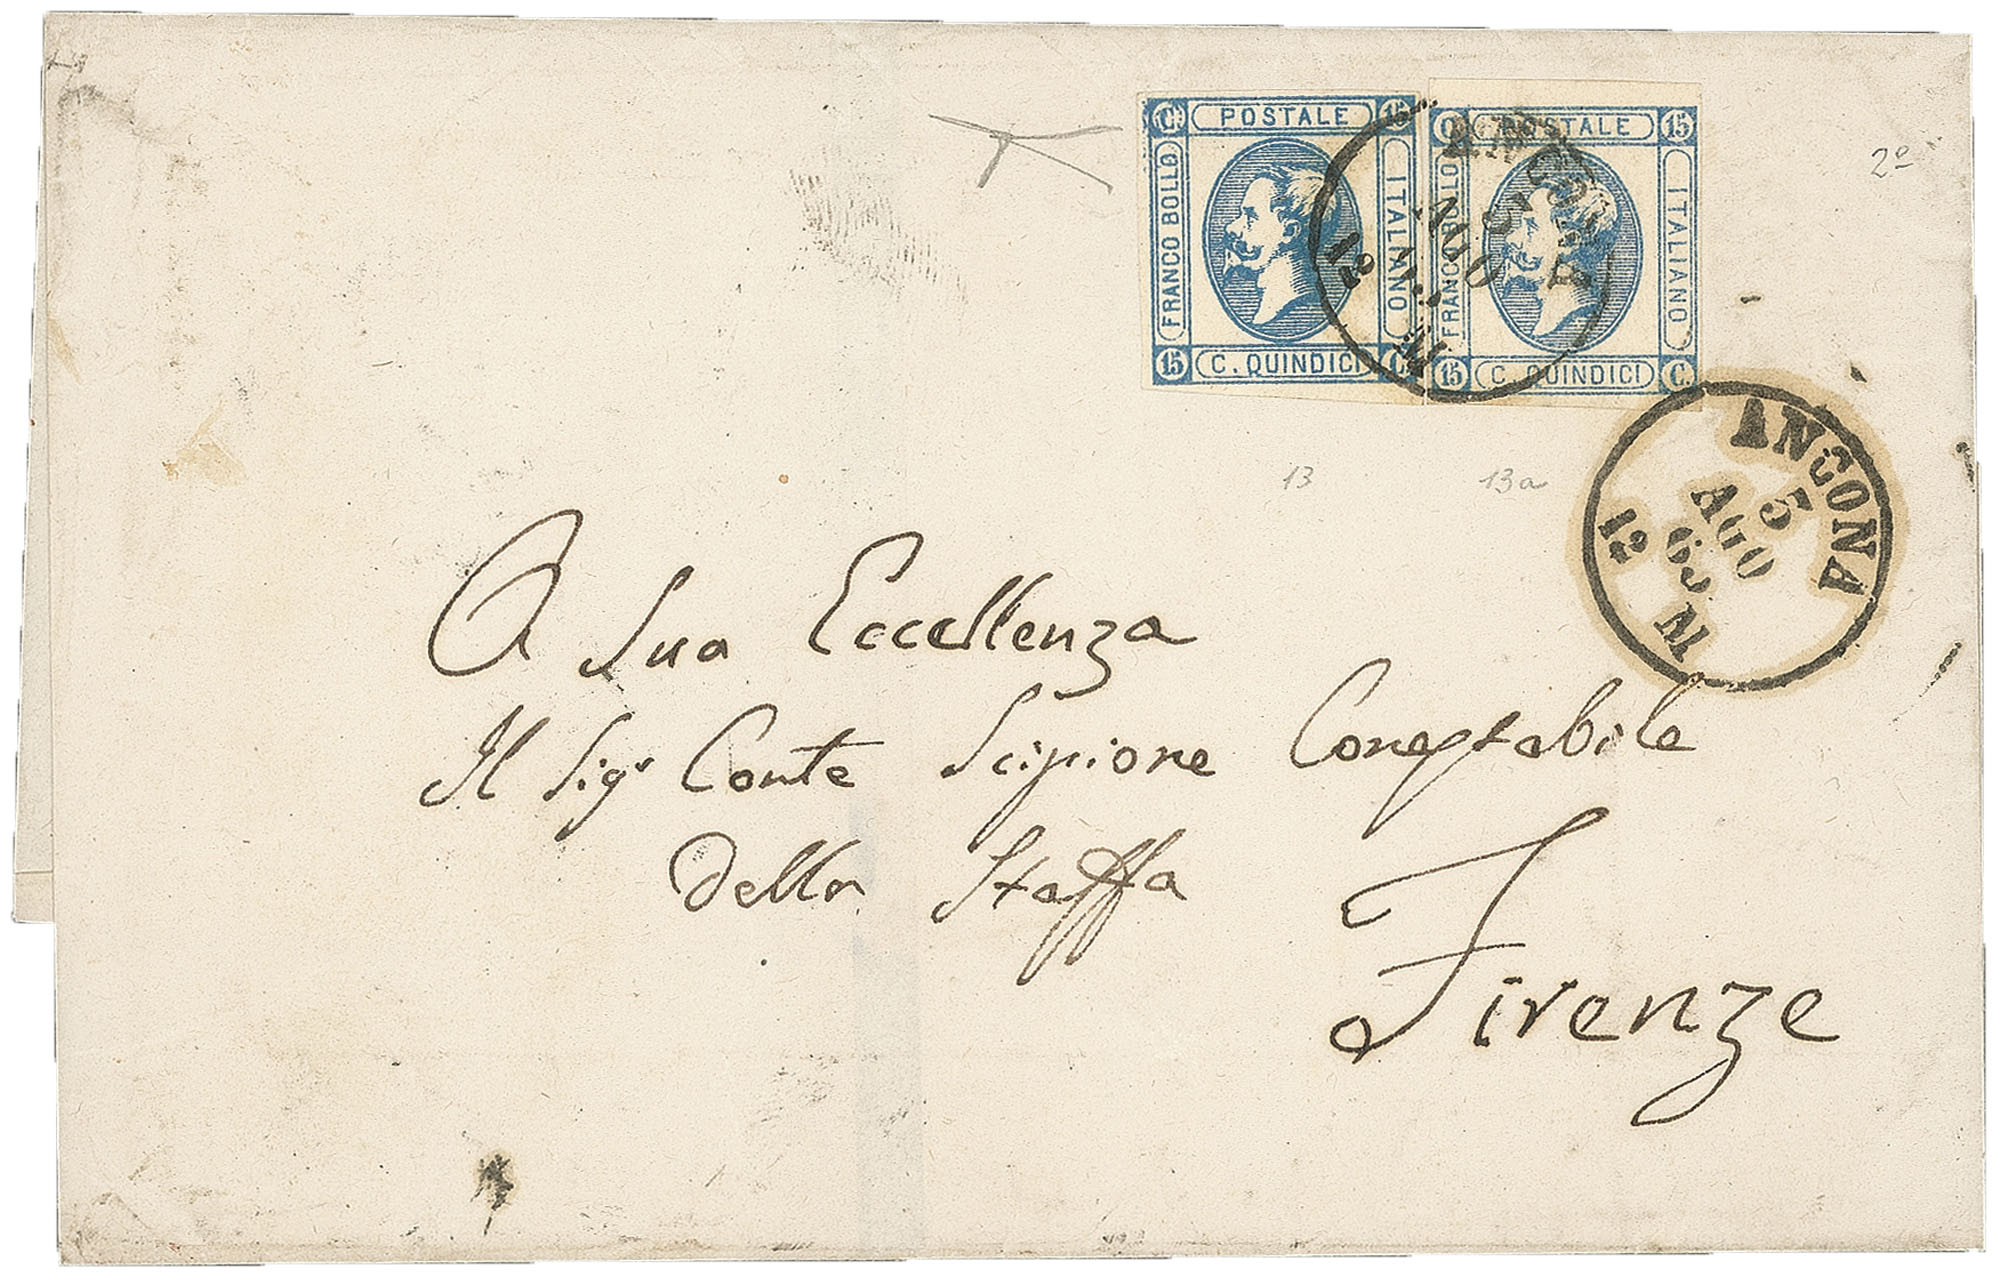 C. POSTALE 15
FRANCO BOLLO
ITALIANO
15 C. QUINDICI C.
C. POSTALE 15
FRANCO BOLLO
ITALIANO
15 C. QUINDICI C.
ANCONA
5
AGO
63
12 M
ANCONA
5
AGO
63
12 M
2º
13 13a
A Sua Eccellenza
Il Sigr Conte Scipione Conestabile
Della Staffa
Firenze